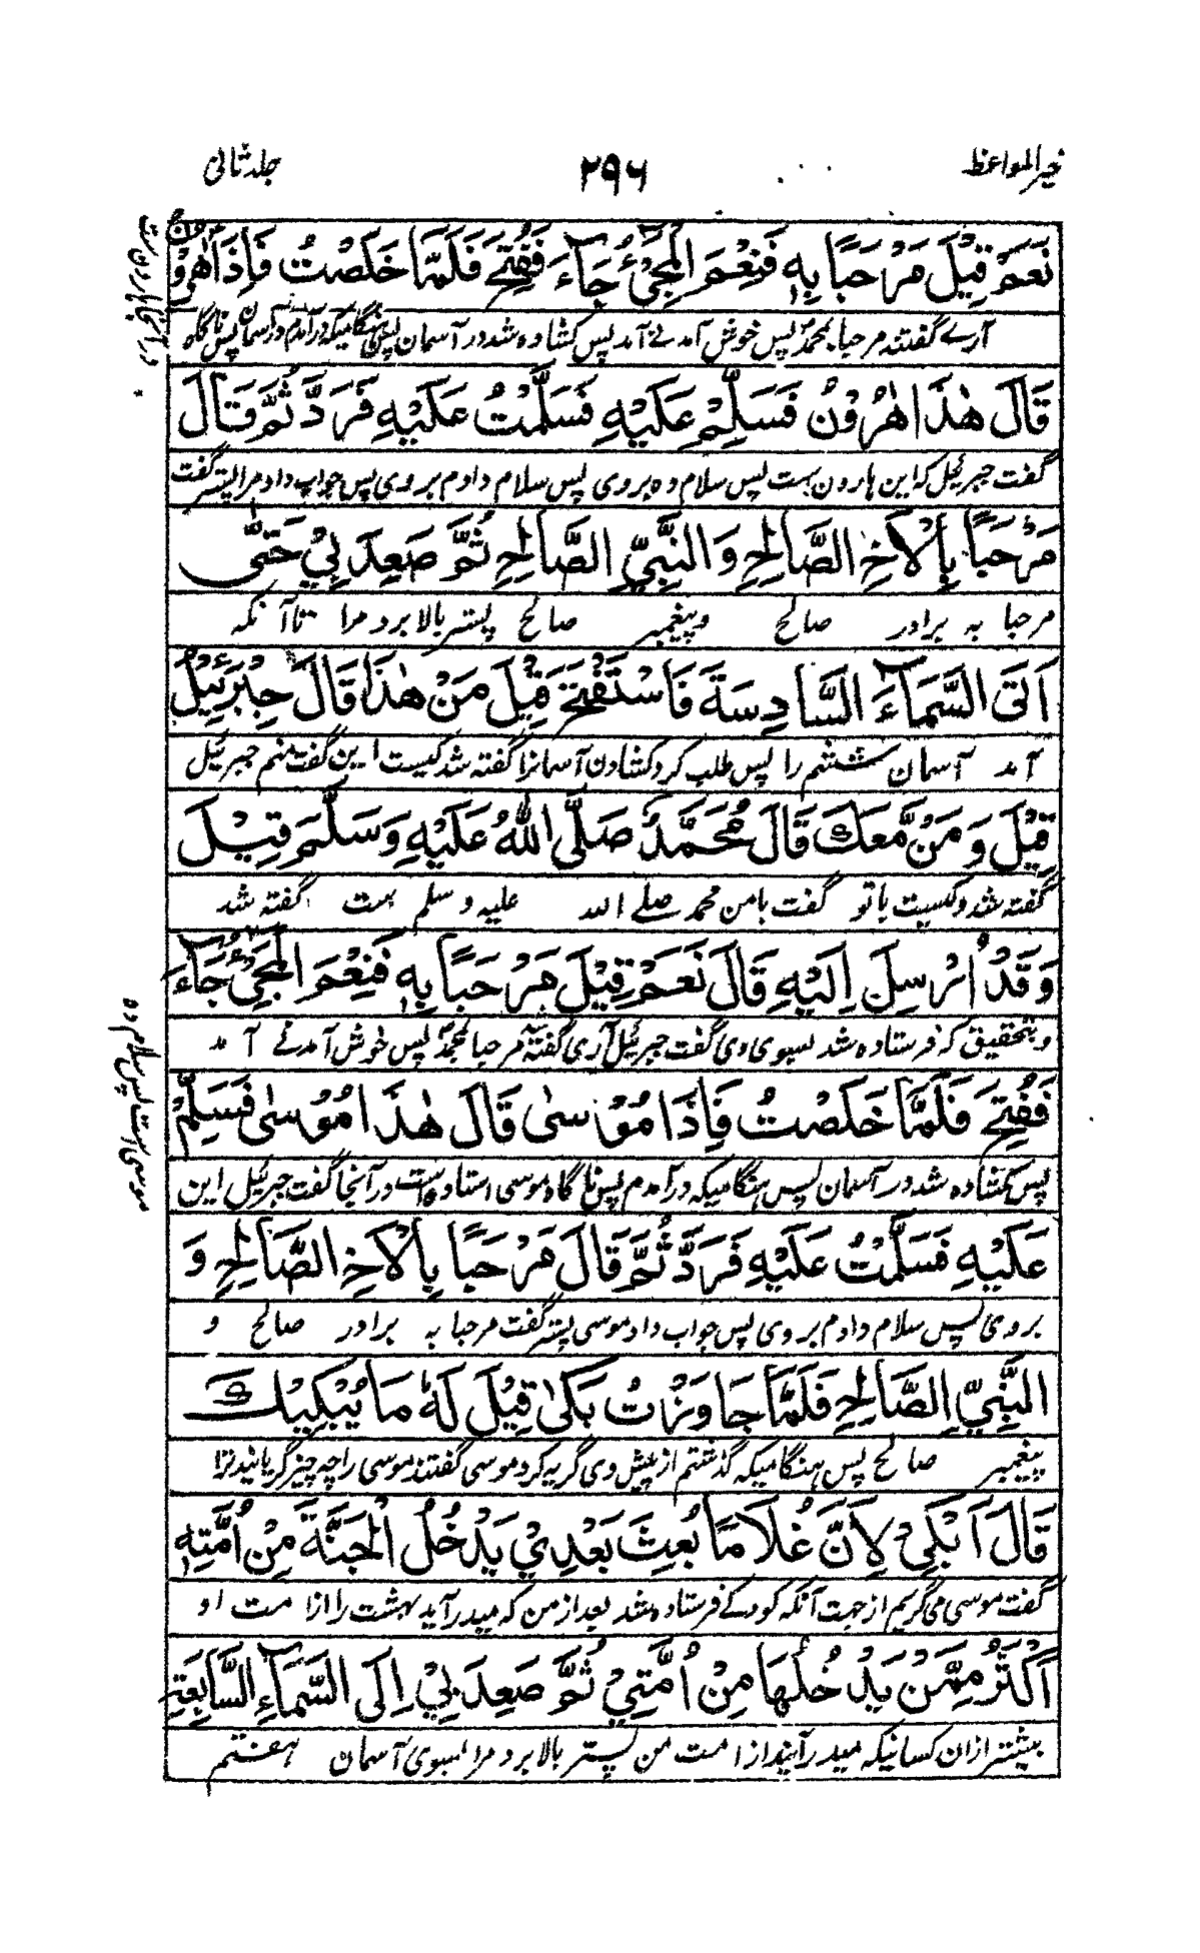 خیر المواعظ ۲۹۶ جلد ثانی
نَعَمْ قِیْلَ مَرْحَبًا بِهٖ فَنِعْمَ الْمَجِیْءُ جَآءَ فَفُتِحَ فَلَمَّا خَلَصْتُ فَاِذَا هٰرُوْنُ
آرے گفتند مرحبا بمحمد پس خوش آمدنے آمد پس کشاده شد در آسمان پس هنگامیکه در آمدم در آسمان پس ناگاه
قَالَ هٰذَا هٰرُوْنُ فَسَلِّمْ عَلَیْهِ فَسَلَّمْتُ عَلَیْهِ فَرَدَّ ثُمَّ قَالَ
گفت جبرئیل که این هارون ست پس سلام ده بروی پس سلام دادم بروی پس جواب داد مرا پستر گفت
مَرْحَبًا بِالْاَخِ الصَّالِحِ وَالنَّبِیِّ الصَّالِحِ ثُمَّ صَعِدَ بِیْ حَتّٰی
مرحبا به برادر صالح وپیغمبر صالح پستر بالا برد مرا تا آنکه
اَتَی السَّمَآءَ السَّادِسَةَ فَاسْتَفْتَحَ قِیْلَ مَنْ هٰذَا قَالَ جِبْرَئِیْلُ
آمد آسمان ششم را پس طلب کرد کشادن آسمانرا گفته شد کیست این گفت منم جبرئیل
قِیْلَ وَمَنْ مَّعَكَ قَالَ مُحَمَّدٌ صَلَّی اللّٰهُ عَلَیْهِ وَسَلَّمَ قِیْلَ
گفته شد وکیست باتو گفت بامن محمد صلے الله علیه وسلم ست گفته شد
وَقَدْ اُرْسِلَ اِلَیْهِ قَالَ نَعَمْ قِیْلَ مَرْحَبًا بِهٖ فَنِعْمَ الْمَجِیْءُ جَآءَ
وبتحقیق که فرستاده شد بسوی وی گفت جبرئیل آری گفته شد مرحبا بمحمد پس خوش آمدنے آمد
فَفُتِحَ فَلَمَّا خَلَصْتُ فَاِذَا مُوْسٰی قَالَ هٰذَا مُوْسٰی فَسَلِّمْ
پس کشاده شد در آسمان پس هنگامیکه در آمدم پس ناگاه موسی استاده است در آنجا گفت جبرئیل این
موسی ست پس سلام ده
عَلَیْهِ فَسَلَّمْتُ عَلَیْهِ فَرَدَّ ثُمَّ قَالَ مَرْحَبًا بِالْاَخِ الصَّالِحِ وَ
بروی پس سلام دادم بروی پس جواب داد موسی پستر گفت مرحبا به برادر صالح و
النَّبِیِّ الصَّالِحِ فَلَمَّا جَاوَزْتُ بَکٰی قِیْلَ لَهٗ مَا یُبْکِیْكَ
پیغمبر صالح پس هنگامیکه گذشتم از پیش وی گریه کرد موسی گفتند موسی را چه چیز گریانید ترا
قَالَ اَبْکِیْ لِاَنَّ غُلَامًا بُعِثَ بَعْدِیْ یَدْخُلُ الْجَنَّةَ مِنْ اُمَّتِهٖ
گفت موسی می گریم از جهت آنکه کودکے فرستاده شد بعد از من که میدرآید بهشت را از امت او
اَکْثَرُ مِمَّنْ یَدْخُلُهَا مِنْ اُمَّتِیْ ثُمَّ صَعِدَ بِیْ اِلَی السَّمَآءِ السَّابِعَةِ
بیشتر از ان کسانیکه میدرآیند از امت من پستر بالا برد مرا بسوی آسمان هفتم